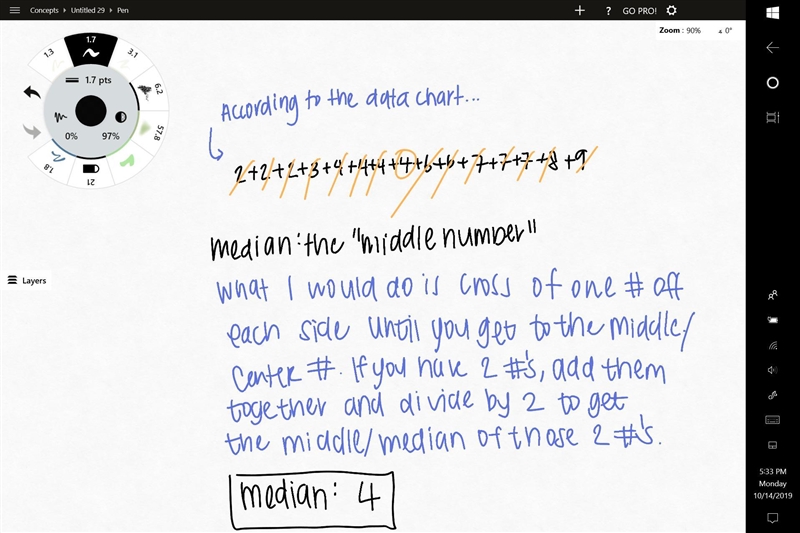 Concepts ▸ Untitled 29 ▸ Pen
+ ? GO PRO!
Zoom : 90% 0°
1.7
1.3
3.1
1.7 pts
6.2
0% 97%
57.8
1.8
21
Layers
According to the data chart...
2+2+2+3+4+4+4+4+6+6+7+7+7+8+9
median: the "middle number"
What I would do is cross of one # off
each side until you get to the middle/
center #. If you have 2 #'s, add them
together and divide by 2 to get
the middle/median of those 2 #'s.
median: 4
5:33 PM
Monday
10/14/2019